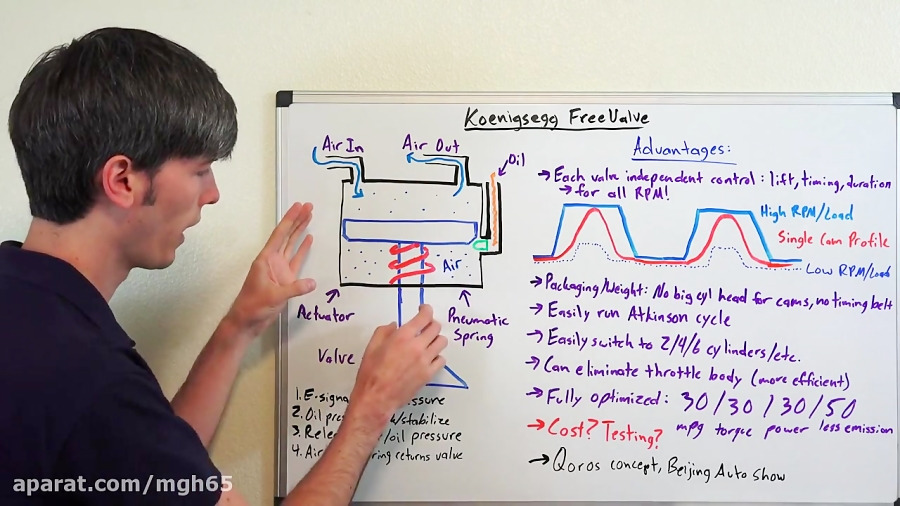 Koenigsegg FreeValve
Air In
Air Out
Oil
Air
Actuator
Pneumatic
Spring
Valve
1. E-signa
2. Oil pre /stabilize
3. Rele /oil pressure
4. Air ring returns valve
Advantages:
→ Each valve independent control: lift, timing, duration
→ for all RPM!
High RPM/Load
Single Cam Profile
Low RPM/Load
→ Packaging/Weight: No big cyl head for cams, no timing belt
→ Easily run Atkinson cycle
→ Easily switch to 2/4/6 cylinders/etc.
→ Can eliminate throttle body (more efficient)
→ Fully optimized: 30/30/30/50
mpg torque power less emission
→ Cost? Testing?
→ Qoros concept, Beijing Auto Show
aparat.com/mgh65